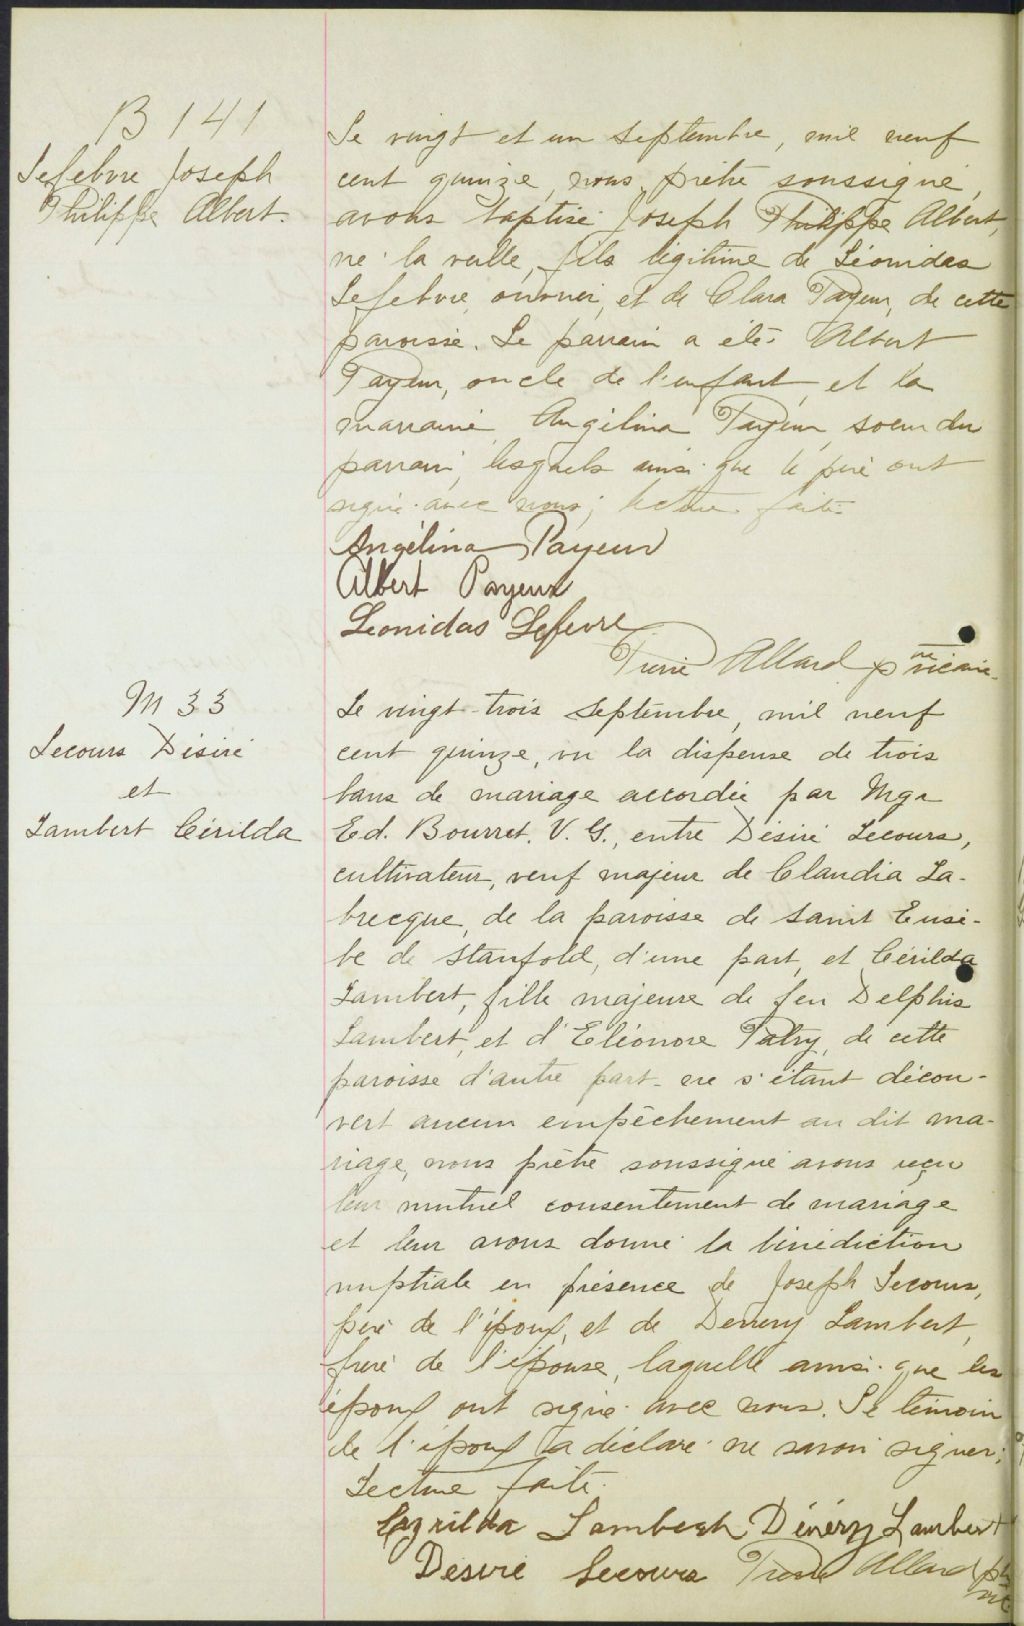 B 141
Lefebvre Joseph
Philippe Albert.
Le vingt et un Septembre, mil neuf
cent quinze, nous, prêtre soussigné,
avons baptisé Joseph Philippe Albert,
né la veille, fils légitime de Léonidas
Lefebvre, ouvrier, et de Clara Payeur, de cette
paroisse. Le parrain a été Albert
Payeur, oncle de l'enfant, et la
marraine, Angélina Payeur, soeur du
parrain, lesquels ainsi que le père ont
signé avec nous; lecture faite.
Angélina Payeur
Albert Payeur
Leonidas Lefevre
Pierre Allard ptre vicaire.
M 33
Lecours Désiré
et
Lambert Cérilda
Le vingt-trois Septembre, mil neuf
cent quinze, vu la dispense de trois
bans de mariage accordée par Mgr
Ed. Bourret. V. G., entre Désiré Lecours,
cultivateur, veuf majeur de Claudia La-
brecque, de la paroisse de Saint Eusè-
be de Stanfold, d'une part, et Cérilda
Lambert, fille majeure de feu Delphis
Lambert, et d'Eléonore Patry, de cette
paroisse d'autre part - ne s'étant décou-
vert aucun empêchement au dit ma-
riage, nous prêtre soussigné avons reçu
leur mutuel consentement de mariage
et leur avons donné la bénédiction
nuptiale en présence de Joseph Lecours,
père de l'époux, et de Dénery Lambert,
frère de l'épouse, laquelle ainsi que les
époux ont signé avec nous. Le témoin
de l'époux a déclaré ne savoir signer;
Lecture faite.
Lambert Dénéry Lambert
Désiré Lecours Pierre Allard ptre
vic.